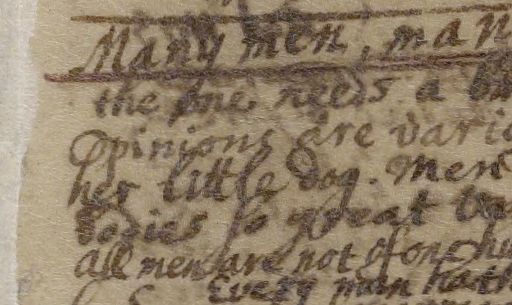 Many men, man
the one needs a bu
Opinions are vario
her little dog. Men
bodies so great
all men are not of one hu
Every man hath